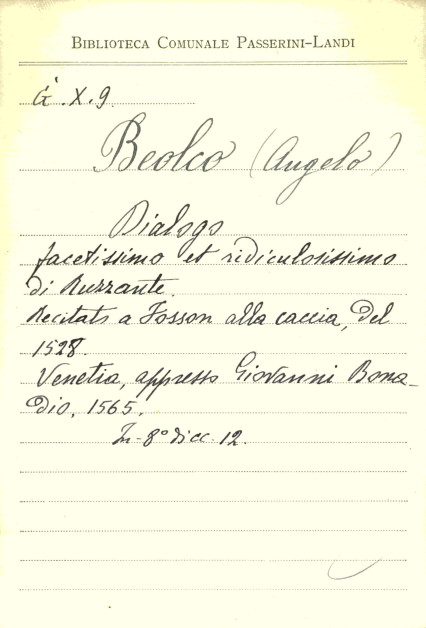 BIBLIOTECA COMUNALE PASSERINI-LANDI
G'. X. 9.
Beolco (Angelo)
Dialogo
facetissimo et ridiculosissimo
di Ruzzante.
Recitato a Fosson alla caccia, del
1528.
Venetia, appresso Giovanni Bona-
dio, 1565.
In-8° di cc. 12.